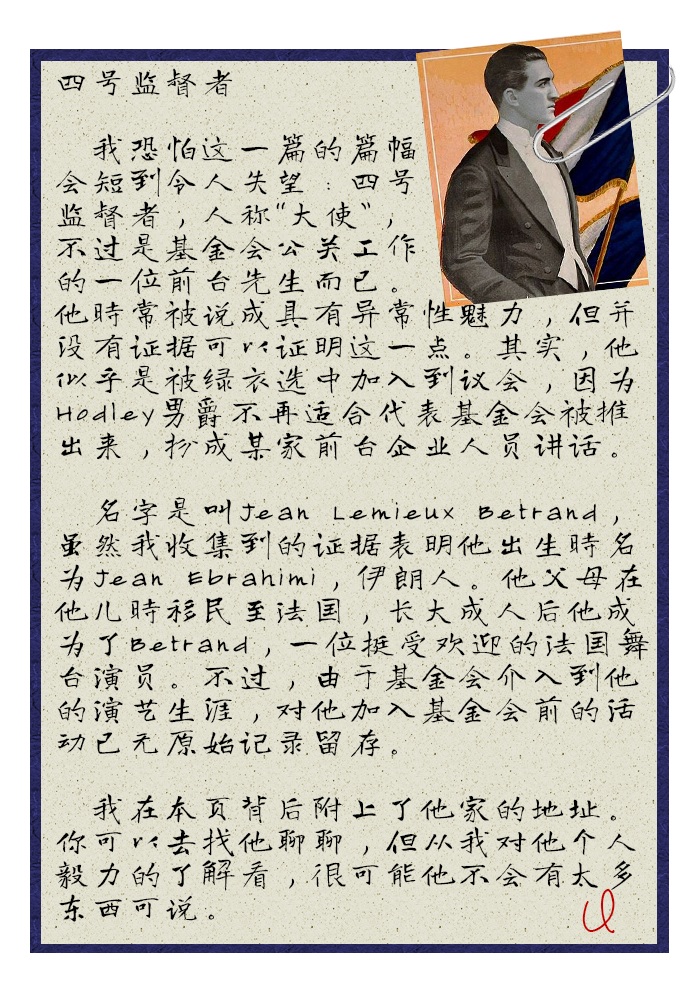 四号监督者
我恐怕这一篇的篇幅
会短到令人失望：四号
监督者，人称“大使”，
不过是基金会公关工作
的一位前台先生而已。
他時常被说成具有异常性魅力，但并
没有证据可以证明这一点。其实，他
似乎是被绿衣选中加入到议会，因为
Hodley男爵不再适合代表基金会被推
出来，扮成某家前台企业人员讲话。
名字是叫Jean Lemieux Betrand，
虽然我收集到的证据表明他出生時名
为Jean Ebrahimi，伊朗人。他父母在
他儿時移民至法国，长大成人后他成
为了Betrand，一位挺受欢迎的法国舞
台演员。不过，由于基金会介入到他
的演艺生涯，对他加入基金会前的活
动已无原始记录留存。
我在本页背后附上了他家的地址。
你可以去找他聊聊，但从我对他个人
毅力的了解看，很可能他不会有太多
东西可说。